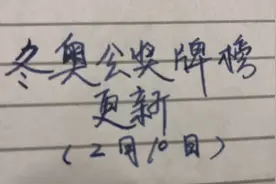 冬奥会奖牌榜
更新
(2月10日)